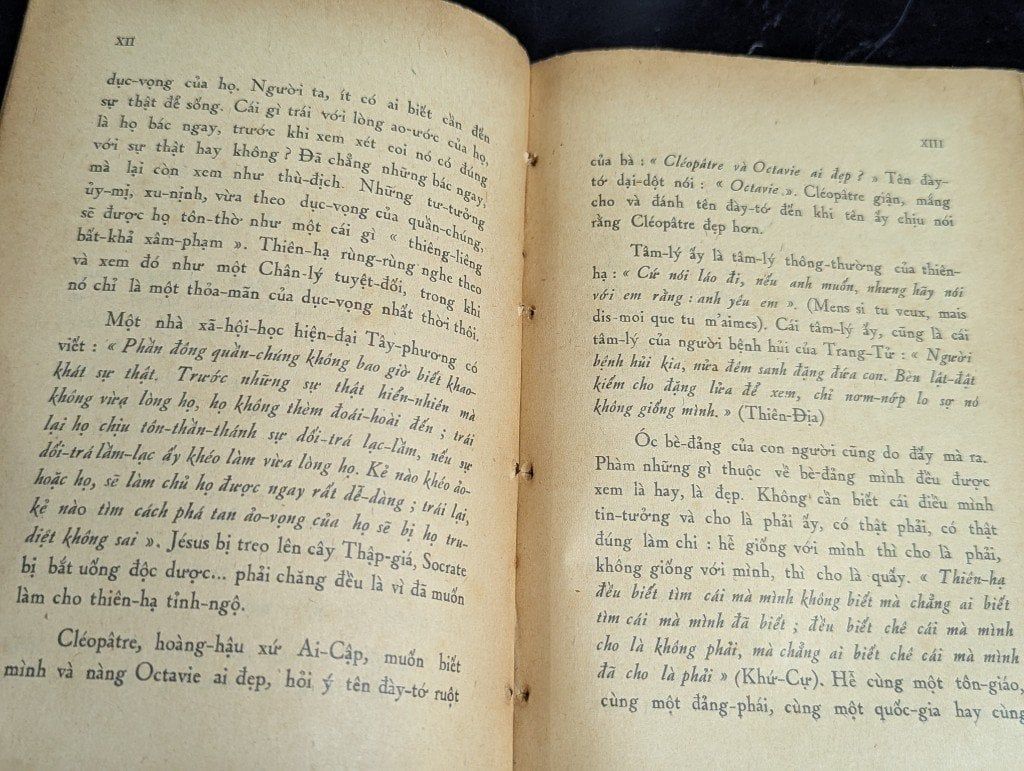 XII
dục-vọng của họ. Người ta, ít có ai biết cần đến
sự thật để sống. Cái gì trái với lòng ao-ước của họ,
là họ bác ngay, trước khi xem xét coi nó có đúng
với sự thật hay không ? Đã chẳng những bác ngay,
mà lại còn xem như thù-địch. Những tư-tưởng
ủy-mị, xu-nịnh, vừa theo dục-vọng của quần-chúng,
sẽ được họ tôn-thờ như một cái gì « thiêng-liêng
bất-khả xâm-phạm ». Thiên-hạ rùng-rùng nghe theo
và xem đó như một Chân-lý tuyệt-đối, trong khi
nó chỉ là một thỏa-mãn của dục-vọng nhất thời thôi.
Một nhà xã-hội-học hiện-đại Tây-phương có
viết : « Phần đông quần-chúng không bao giờ biết khao-
khát sự thật. Trước những sự thật hiển-nhiên mà
không vừa lòng họ, họ không thèm đoái-hoài đến ; trái
lại họ chịu tôn-thần-thánh sự dối-trá lạc-lầm, nếu sự
dối-trá lầm-lạc ấy khéo làm vừa lòng họ. Kẻ nào khéo ảo-
hoặc họ, sẽ làm chủ họ được ngay rất dễ-dàng ; trái lại,
kẻ nào tìm cách phá tan ảo-vọng của họ sẽ bị họ tru-
diệt không sai ». Jésus bị treo lên cây Thập-giá, Socrate
bị bắt uống độc dược... phải chăng đều là vì đã muốn
làm cho thiên-hạ tỉnh-ngộ.
Cléopâtre, hoàng-hậu xứ Ai-Cập, muốn biết
mình và nàng Octavie ai đẹp, hỏi ý tên đày-tớ ruột
XIII
của bà : « Cléopâtre và Octavie ai đẹp ? » Tên đày-
tớ dại-dột nói : « Octavie ». Cléopâtre giận, mắng
cho và đánh tên đày-tớ đến khi tên ấy chịu nói
rằng Cléopâtre đẹp hơn.
Tâm-lý ấy là tâm-lý thông-thường của thiên-
hạ : « Cứ nói láo đi, nếu anh muốn, nhưng hãy nói
với em rằng : anh yêu em ». (Mens si tu veux, mais
dis-moi que tu m'aimes). Cái tâm-lý ấy, cũng là cái
tâm-lý của người bệnh hủi của Trang-Tử : « Người
bệnh hủi kia, nửa đêm sanh đặng đứa con. Bèn lật-đật
kiếm cho đặng lửa để xem, chỉ nơm-nớp lo sợ nó
không giống mình. » (Thiên-Địa)
Óc bè-đảng của con người cũng do đấy mà ra.
Phàm những gì thuộc về bè-đảng mình đều được
xem là hay, là đẹp. Không cần biết cái điều mình
tin-tưởng và cho là phải ấy, có thật phải, có thật
đúng làm chi : hễ giống với mình thì cho là phải,
không giống với mình, thì cho là quấy. « Thiên-hạ
đều biết tìm cái mà mình không biết mà chẳng ai biết
tìm cái mà mình đã biết ; đều biết chê cái mà mình
cho là không phải, mà chẳng ai biết chê cái mà mình
đã cho là phải » (Khứ-Cự). Hễ cùng một tôn-giáo,
cùng một đảng-phái, cùng một quốc-gia hay cùng